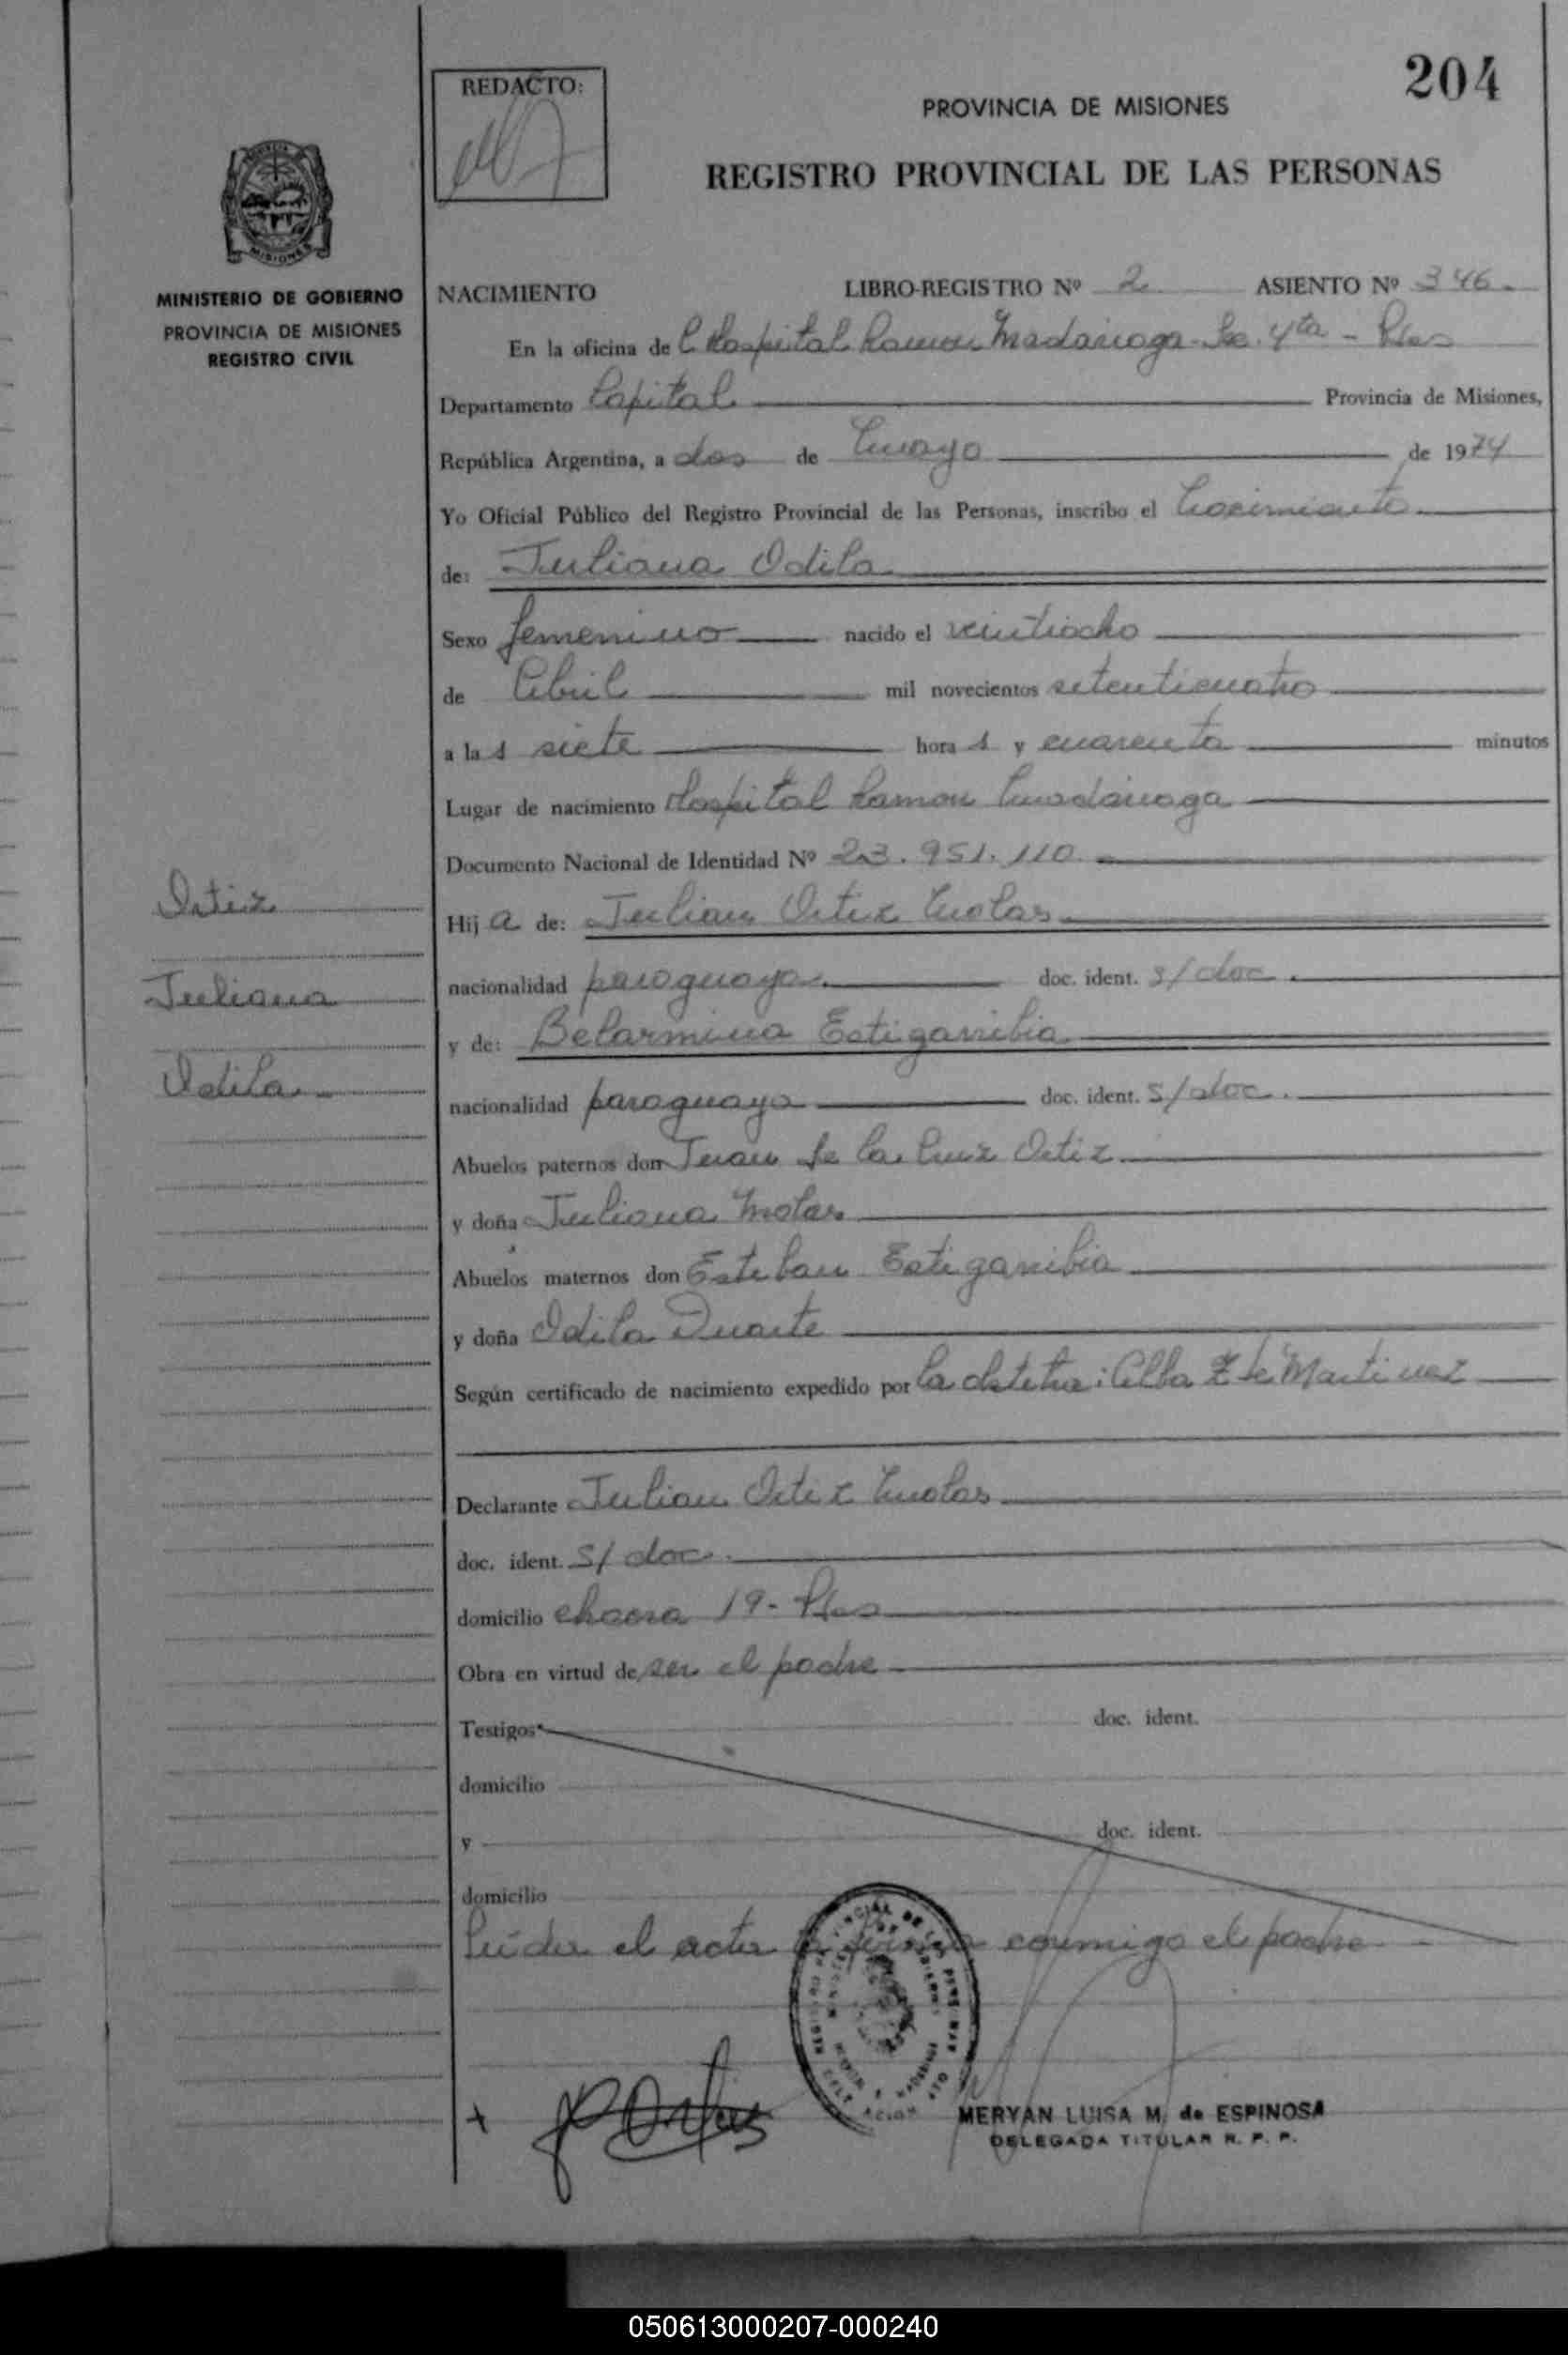 204
REDACTO:
PROVINCIA DE MISIONES
REGISTRO PROVINCIAL DE LAS PERSONAS
MISIONES
MINISTERIO DE GOBIERNO
PROVINCIA DE MISIONES
REGISTRO CIVIL
NACIMIENTO LIBRO-REGISTRO Nº 2 ASIENTO Nº 346
En la oficina de Hospital Ramon Madariaga 4ta - Pdas
Departamento Capital Provincia de Misiones,
República Argentina, a dos de mayo de 1974
Yo Oficial Público del Registro Provincial de las Personas, inscribo el nacimiento
de: Juliana Odila
Sexo femenino nacido el veintiocho
de Abril mil novecientos setenticuatro
a las siete horas y cuarenta minutos
Lugar de nacimiento Hospital Ramon Madariaga
Documento Nacional de Identidad Nº 23.951.110
Ortiz
Juliana
Odila
Hija de: Julian Ortiz Molas
nacionalidad paraguaya doc. ident. s/doc.
y de: Belarmina Estigarribia
nacionalidad paraguaya doc. ident. s/doc.
Abuelos paternos don Juan de la Cruz Ortiz
y doña Juliana Molas
Abuelos maternos don Esteban Estigarribia
y doña Odila Duarte
Según certificado de nacimiento expedido por la obstetra: Alba Z de Martinez
Declarante Julian Ortiz Molas
doc. ident. s/doc.
domicilio chacra 19- Pdas
Obra en virtud de ser el padre
Testigos: doc. ident.
domicilio
y doc. ident.
domicilio
Leída el acta la firma conmigo el padre
MERYAN LUISA M. de ESPINOSA
DELEGADA TITULAR R. P. P.
050613000207-000240